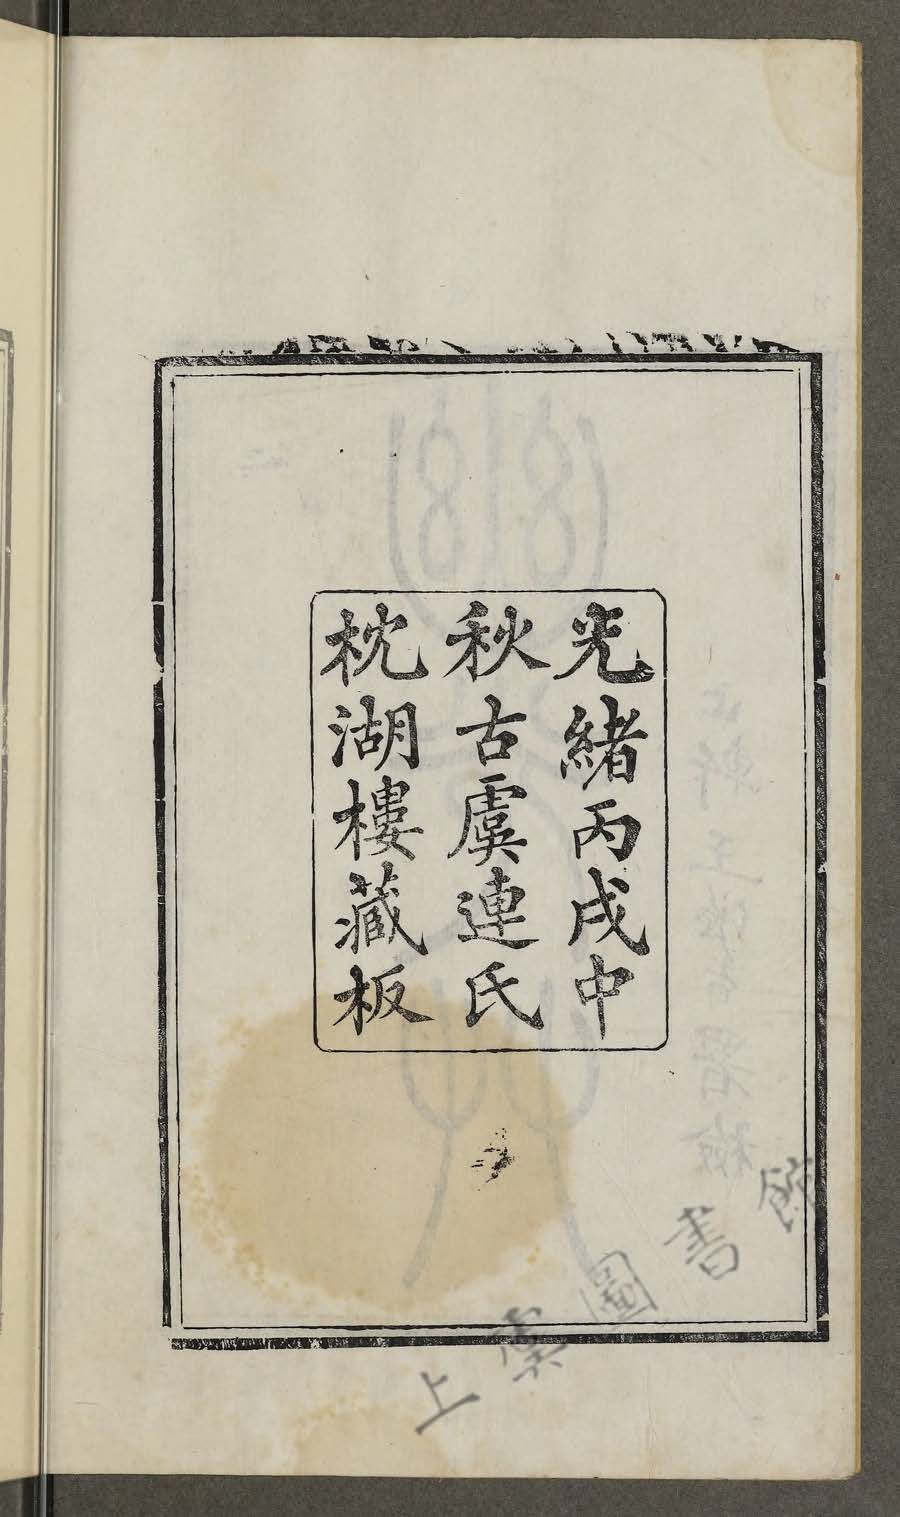 光緒丙戌中
秋古虞連氏
枕湖樓藏板
上虞圖書館